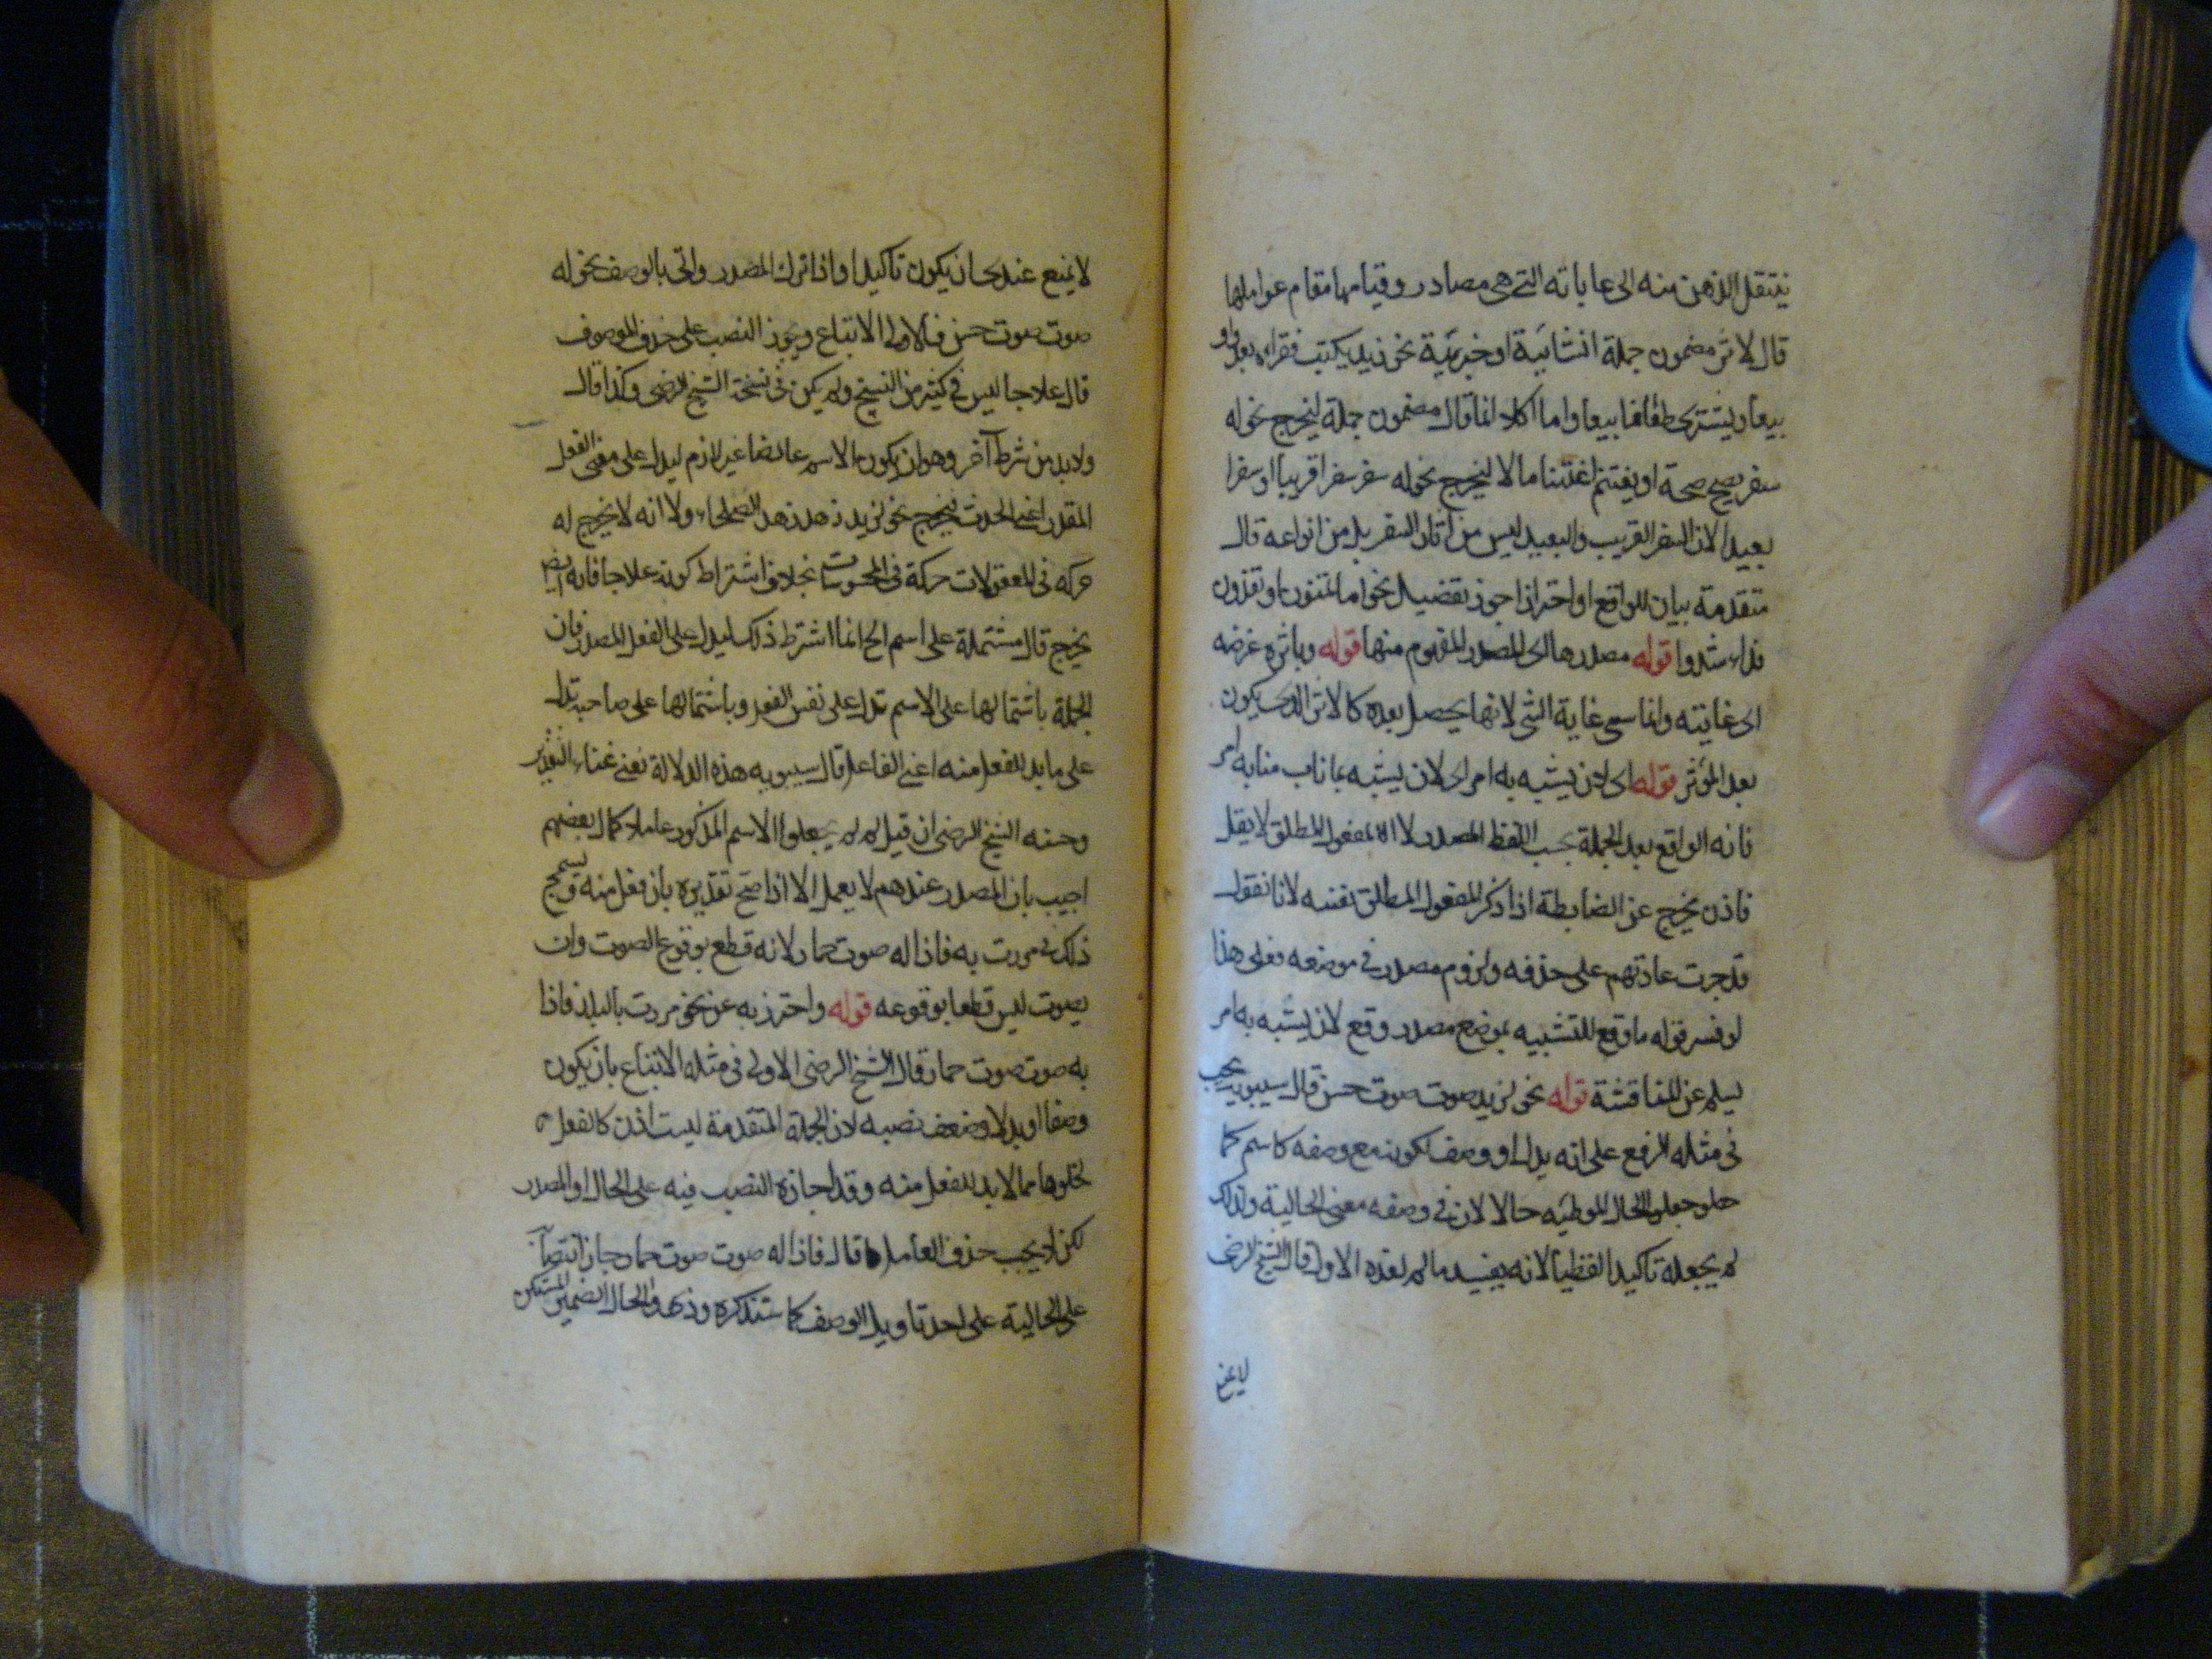 ينتقل الذهن منه الى غاياته التى هى مصادر وقيامها مقام عواملها
قال لاثر مضمون جملة انشائية او خبرية نحو زيد يكتب فقراءة بعد او
بيعا ويشترى طعاما فاما بيعا واما اكلا انما قال مضمون جملة ليخرج نحو له
سفر يصح صحة او يغتنم اغتناما لا ليخرج نحو له سفر سفرا قريبا او سفرا
بعيدا لان السفر القريب والبعيد ليس من اثار السفر بل من انواعه قال
متقدمة بيان للواقع او احتراز اجوز تفصيل نحو اما تمنون او تفدون
فداء شدوا قوله مصدرها اى المصدر المفهوم منها قوله وباثره غرضه
اى غايته وانما سمى غاية الشى لانها يحصل بعده كالاثر الذى يكون
بعد المؤثر قوله اى لان يشبه به امر اى لان يشبه بما ناب منابه امر
فانه الواقع بعد الجملة بحسب اللفظ المصدر لا المفعول المطلق لا يقل
فاذن يخرج عن الضابطة اذا ذكر المفعول المطلق نفسه لانا نقول
قد جرت عادتهم على حذفه ولزوم مصدر فى موضعه فعلى هذا
لو فسر قوله ما وقع للتشبيه بموضع مصدر وقع لان يشبه به امر
يسلم عن المناقشة قوله نحو لزيد صوت صوت حسن قال سيبويه يجب
فى مثله الرفع على انه بدل او وصف لكونه مع وصفه كاسم كما
جعلوا الحال الموطئه حالا لان فى وصفه معنى الحالية ولذلك
لم يجعله تاكيدا لفظيا لانه يفيد ما لم يفده الاول قال الشيخ الرضى
لا يمنع
لا يمنع عندى ان يكون تاكيدا واذا ترك المصدر واتى بالوصف نحو له
صوت صوت حسن فالاولى الاتباع ويجوز النصب على حذف الموصوف
قال علاجا ليس فى كثير من النسخ ولم يكن فى نسخة الشيخ الرضى وكذا قال
ولابد من شرط آخر وهو ان يكون الاسم عارضا غير لازم ليدل على معنى الفعل
المقدر اعنى الحدث ليخرج نحو لزيد زهد زهد الصلحاء ولا انه لا يخرج له
حركه فى المعقولات حركة فى المحسوسات بخلاف اشتراط كونه علاجا فانه ايضا
يخرج قال مشتملة على اسم الخ انما اشترط ذلك ليدل على الفعل المصدر فان
الجملة باشتمالها على الاسم تدل على نفس الفعل وباشتمالها على صاحبه تدل
على ما بد للفعل منه اعنى الفاعل قال سيبويه هذه الدلالة تغنى غناء التقدير
وحسنه الشيخ الرضى ان قيل لم لم يجعلوا الاسم المذكور عاملا كما قال بعضهم
اجيب بان المصدر عندهم لا يعمل الا اذا صح تقديره بان وفعل منه ويسمج
ذلك فى مررت به فاذا له صوت حمار لانه قطع بوقوع الصوت وان
يصوت ليس قطعا بوقوعه قوله واحترز به عن نحو مررت بالبلد فاذا
به صوت صوت حمار قال الشيخ الرضى الاولى فى مثله الاتباع بان يكون
وصفا او بدلا وضعف نصبه لان الجملة المتقدمة ليست اذن كالفعل
لخلوها مما لا بد للفعل منه وقد اجازه النصب فيه على الحال او المصدر
لكن لا يجب حذف العامل قال فاذا له صوت صوت حمار جاز انتصابه
على الحالية على احد تاويل الوصف كما ستذكره وذو الحال الضمير المستكن